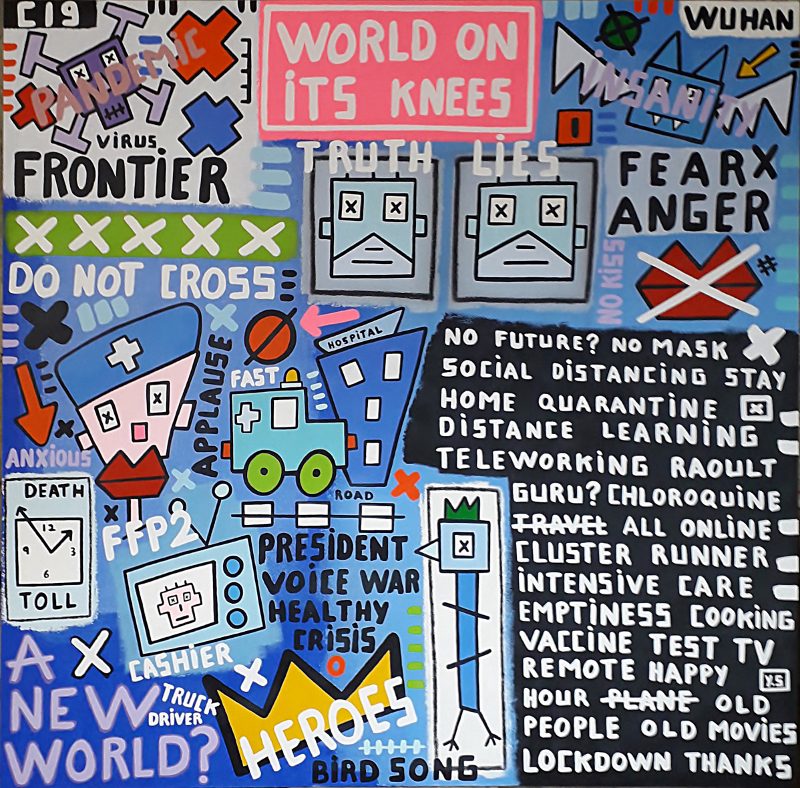 C19
PANDEMIC
VIRUS
FRONTIER
WORLD ON
ITS KNEES
WUHAN
INSANITY
TRUTH LIES
FEAR
ANGER
NO KISS
#
XXXXX
DO NOT CROSS
APPLAUSE
FAST
HOSPITAL
ANXIOUS
ROAD
DEATH
12
9 3
6
TOLL
FFP2
PRESIDENT
VOICE WAR
HEALTHY
CRISIS
CASHIER
TRUCK
DRIVER
A
NEW
WORLD?
HEROES
BIRD SONG
NO FUTURE? NO MASK
SOCIAL DISTANCING STAY
HOME QUARANTINE
DISTANCE LEARNING
TELEWORKING RAOULT
GURU? CHLOROQUINE
TRAVEL ALL ONLINE
CLUSTER RUNNER
INTENSIVE CARE
EMPTINESS COOKING
VACCINE TEST TV
REMOTE HAPPY
Y.S
HOUR PLANE OLD
PEOPLE OLD MOVIES
LOCKDOWN THANKS